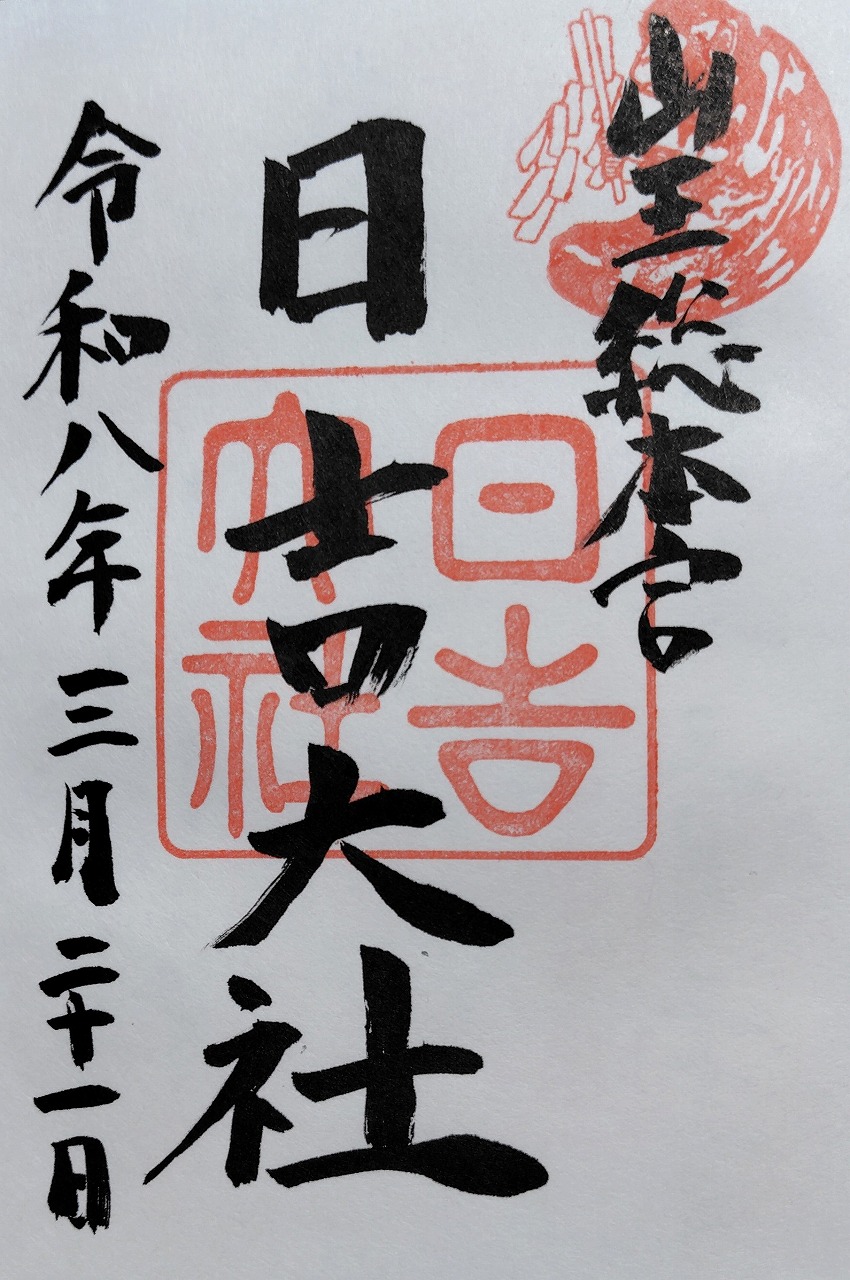 山王総本宮
日吉大社
日吉大社
令和八年三月二十一日